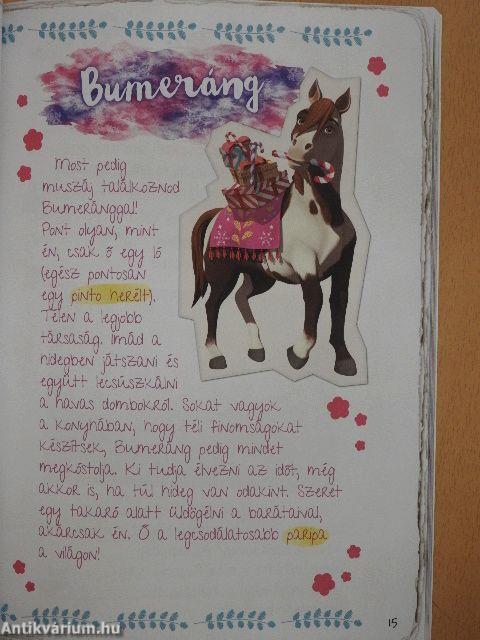 Bumeráng
Most pedig
muszáj találkoznod
Bumeránggal!
Pont olyan, mint
én, csak ő egy ló
(egész pontosan
egy pinto herélt).
Télen a legjobb
társaság. Imád a
hidegben játszani és
együtt lecsúszkálni
a havas dombokról. Sokat vagyok
a konyhában, hogy téli finomságokat
készítsek, Bumeráng pedig mindet
megkóstolja. Ki tudja élvezni az időt, még
akkor is, ha túl hideg van odakint. Szeret
egy takaró alatt üldögélni a barátaival,
akárcsak én. Ő a legcsodálatosabb paripa
a világon!
15
Antikvárium.hu